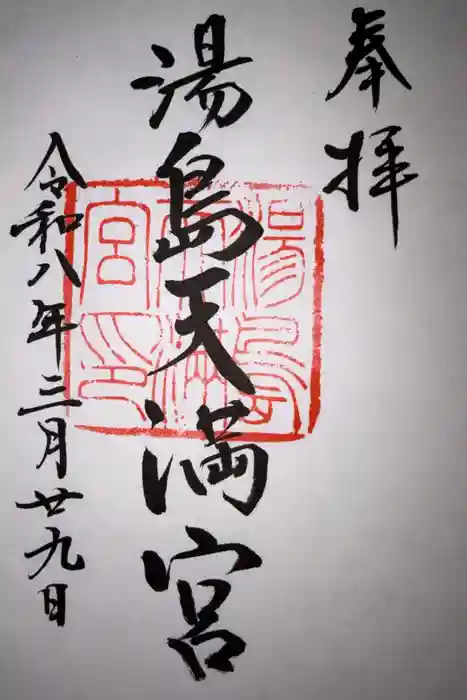 奉拝
湯島天満宮
湯島天満宮印
令和八年三月廿九日